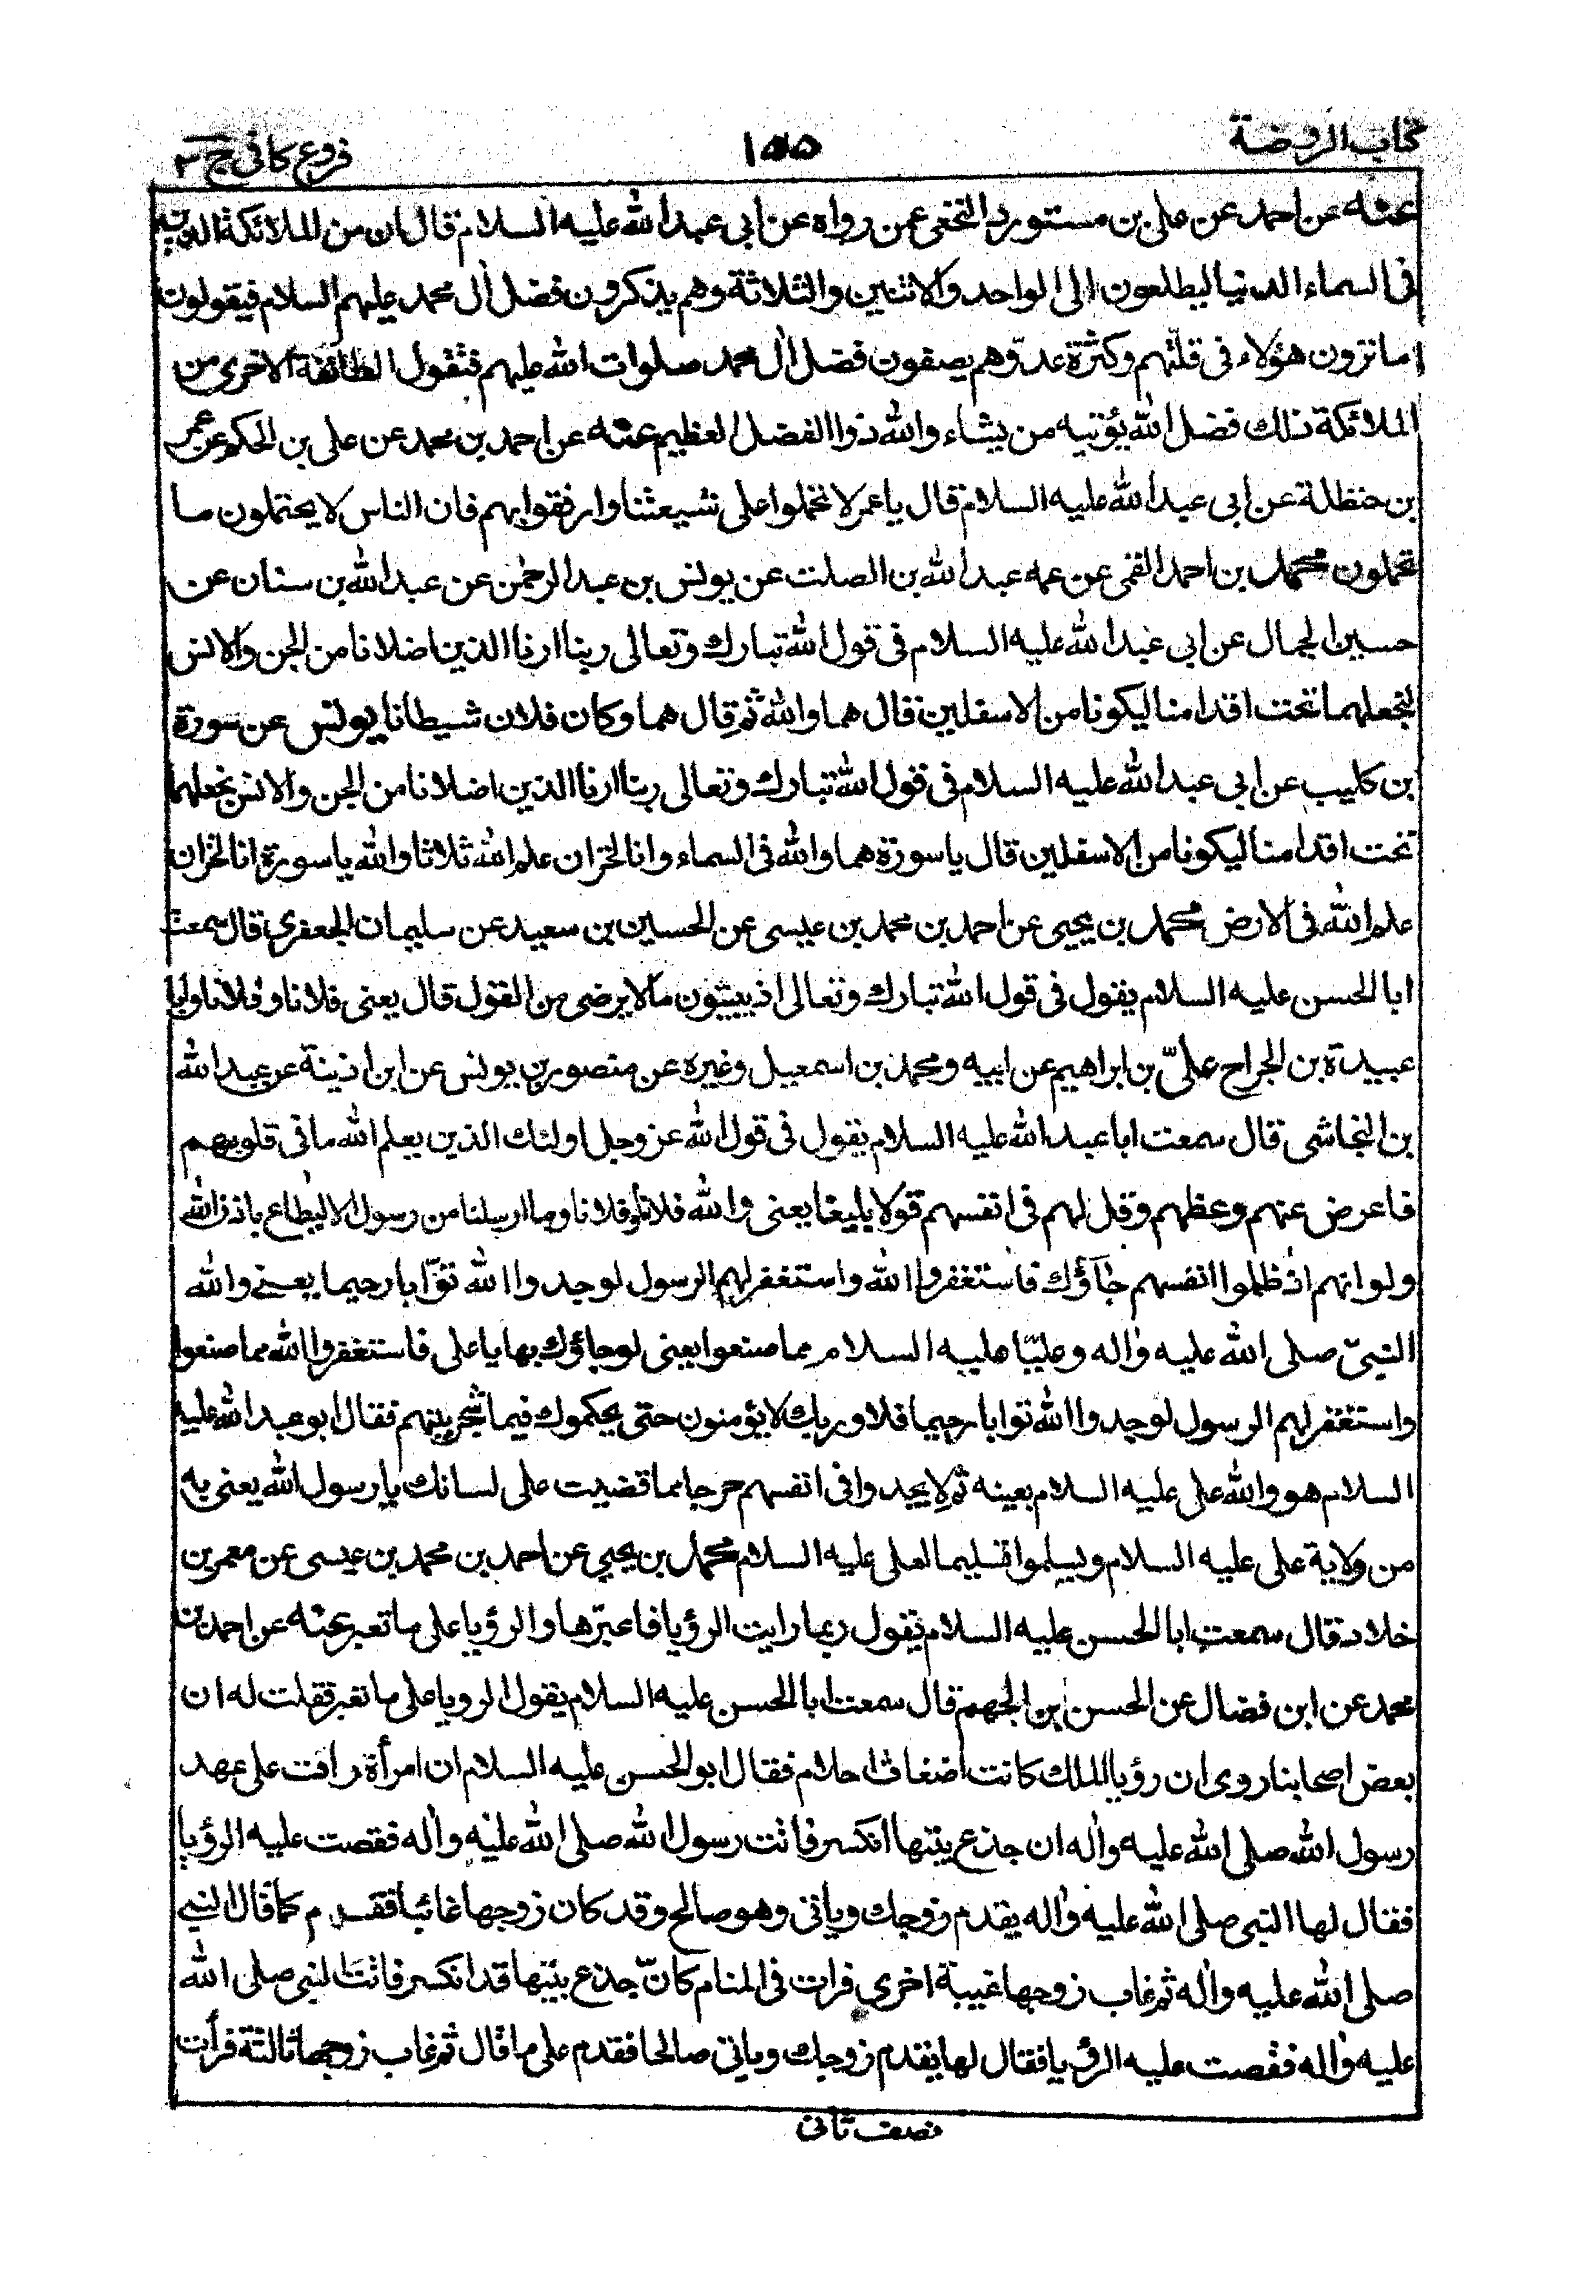 كتاب الروضة
١٥٥
فروع كافى ج ٣
عنه عن احمد عن على بن مستورد النخعى عمن رواه عن ابى عبد الله عليه السلام قال ان من الملائكة الذين
فى السماء الدنيا ليطلعون الى الواحد والاثنين والثلاثة وهم يذكرون فضل ال محمد عليهم السلام فيقولون
اما ترون هؤلاء فى قلتهم وكثرة عدوهم يصفون فضل ال محمد صلوات الله عليهم فتقول الطائفة الاخرى من
الملائكة ذلك فضل الله يؤتيه من يشاء والله ذوا الفضل العظيم عنه عن احمد بن محمد عن على بن الحكم عن عمر
بن حنظلة عن ابى عبد الله عليه السلام قال يا عمر لا تحملوا على شيعتنا وارفقوا بهم فان الناس لا يحتملون ما
تحملون محمد بن احمد القمى عن عمه عبد الله بن الصلت عن يونس بن عبد الرحمن عن عبد الله بن سنان عن
حسين الجمال عن ابى عبد الله عليه السلام فى قول الله تبارك وتعالى ربنا ارنا الذين اضلانا من الجن والانس
نجعلهما تحت اقدامنا ليكونا من الاسفلين قال هما والله ثم قال هما وكان فلان شيطانا يونس عن سورة
بن كليب عن ابى عبد الله عليه السلام فى قول الله تبارك وتعالى ربنا ارنا الذين اضلانا من الجن والانس نجعلهما
تحت اقدامنا ليكونا من الاسفلين قال يا سورة هما والله فى السماء وانا لخزان علم الله ثلاثا والله يا سورة انا لخزان
علم الله فى الارض محمد بن يحيى عن احمد بن محمد بن عيسى عن الحسين بن سعيد عن سليمان الجعفري قال سمعت
ابا الحسن عليه السلام يقول فى قول الله تبارك وتعالى اذ يبيتون ما لا يرضى من القول قال يعنى فلانا وفلانا وابا
عبيدة بن الجراح علىّ بن ابراهيم عن ابيه ومحمد بن اسمعيل وغيره عن منصور بن يونس عن ابن اذينة عن عبد الله
بن النجاشى قال سمعت ابا عبد الله عليه السلام يقول فى قول الله عز وجل اولئك الذين يعلم الله ما فى قلوبهم
فاعرض عنهم وعظهم وقل لهم فى انفسهم قولا بليغا يعنى والله فلانا وفلانا وما ارسلنا من رسول الا ليطاع باذن الله
ولو انهم اذ ظلموا انفسهم جآؤك فاستغفروا الله واستغفر لهم الرسول لوجدوا الله توّابا رحيما يعنى والله
النبىّ صلى الله عليه واله وعليّا عليه السلام مما صنعوا يعنى لو جاؤك بها يا على فاستغفروا الله مما صنعوا
واستغفر لهم الرسول لوجدوا الله توابا رحيما فلا وربك لا يؤمنون حتى يحكموك فيما شجر بينهم فقال ابو عبد الله عليه
السلام هو والله على عليه السلام بعينه ثم لا يجدوا فى انفسهم حرجا مما قضيت على لسانك يا رسول الله يعنى به
من ولاية على عليه السلام ويسلموا تسليما لعلى عليه السلام محمد بن يحيى عن احمد بن محمد بن عيسى عن معمر بن
خلاد قال سمعت ابا الحسن عليه السلام يقول ربما رايت الرؤيا فاعبّرها والرؤيا على ما تعبر عنه عن احمد بن
محمد عن ابن فضال عن الحسن ابن الجهم قال سمعت ابا الحسن عليه السلام يقول الرويا على ما تعبر فقلت له ان
بعض اصحابنا روى ان رؤيا الملك كانت اضغاث احلام فقال ابو الحسن عليه السلام ان امرأة رأت على عهد
رسول الله صلى الله عليه واله ان جذع بيتها انكسر فاتت رسول الله صلى الله عليه واله فقصت عليه الرؤيا
فقال لها النبى صلى الله عليه واله يقدم زوجك وياتى وهو صالح وقد كان زوجها غائبا فقدم كما قال النبى
صلى الله عليه واله ثم غاب زوجها غيبة اخرى فرات فى المنام كانّ جذع بيتها قد انكسر فاتت النبى صلى الله
عليه واله فقصت عليه الرؤيا فقال لها يقدم زوجك وياتى صالحا فقدم على ما قال ثم غاب زوجها ثالثة فرأت
نصف ثانى